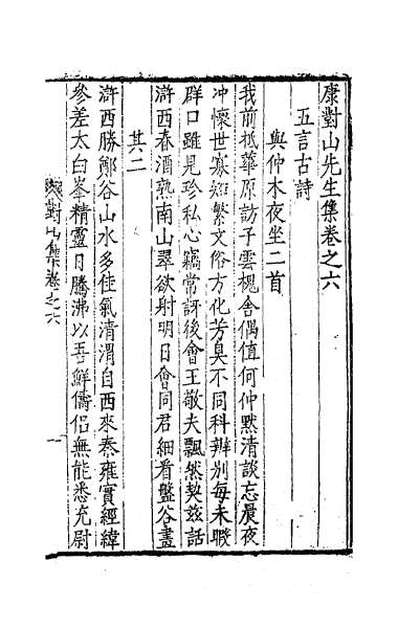 康對山先生集卷之六
五言古詩
與仲木夜坐二首
我前柢華原訪子雲槐舍偶值何仲默清談忘晨夜
冲懷世寡知繁文俗方化芳臭不同科辨別每未暇
群口雖見珍私心竊常訝後會王敬夫飄然契兹話
滸西春酒熟南山翠欲射明日會同君細看盤谷畫
其二
滸西勝鄭谷山水多佳氣清渭自西來秦雍實經緯
參差太白峯精靈日騰沸以吾鮮儔侣無能悉充尉
對山集卷之六
一